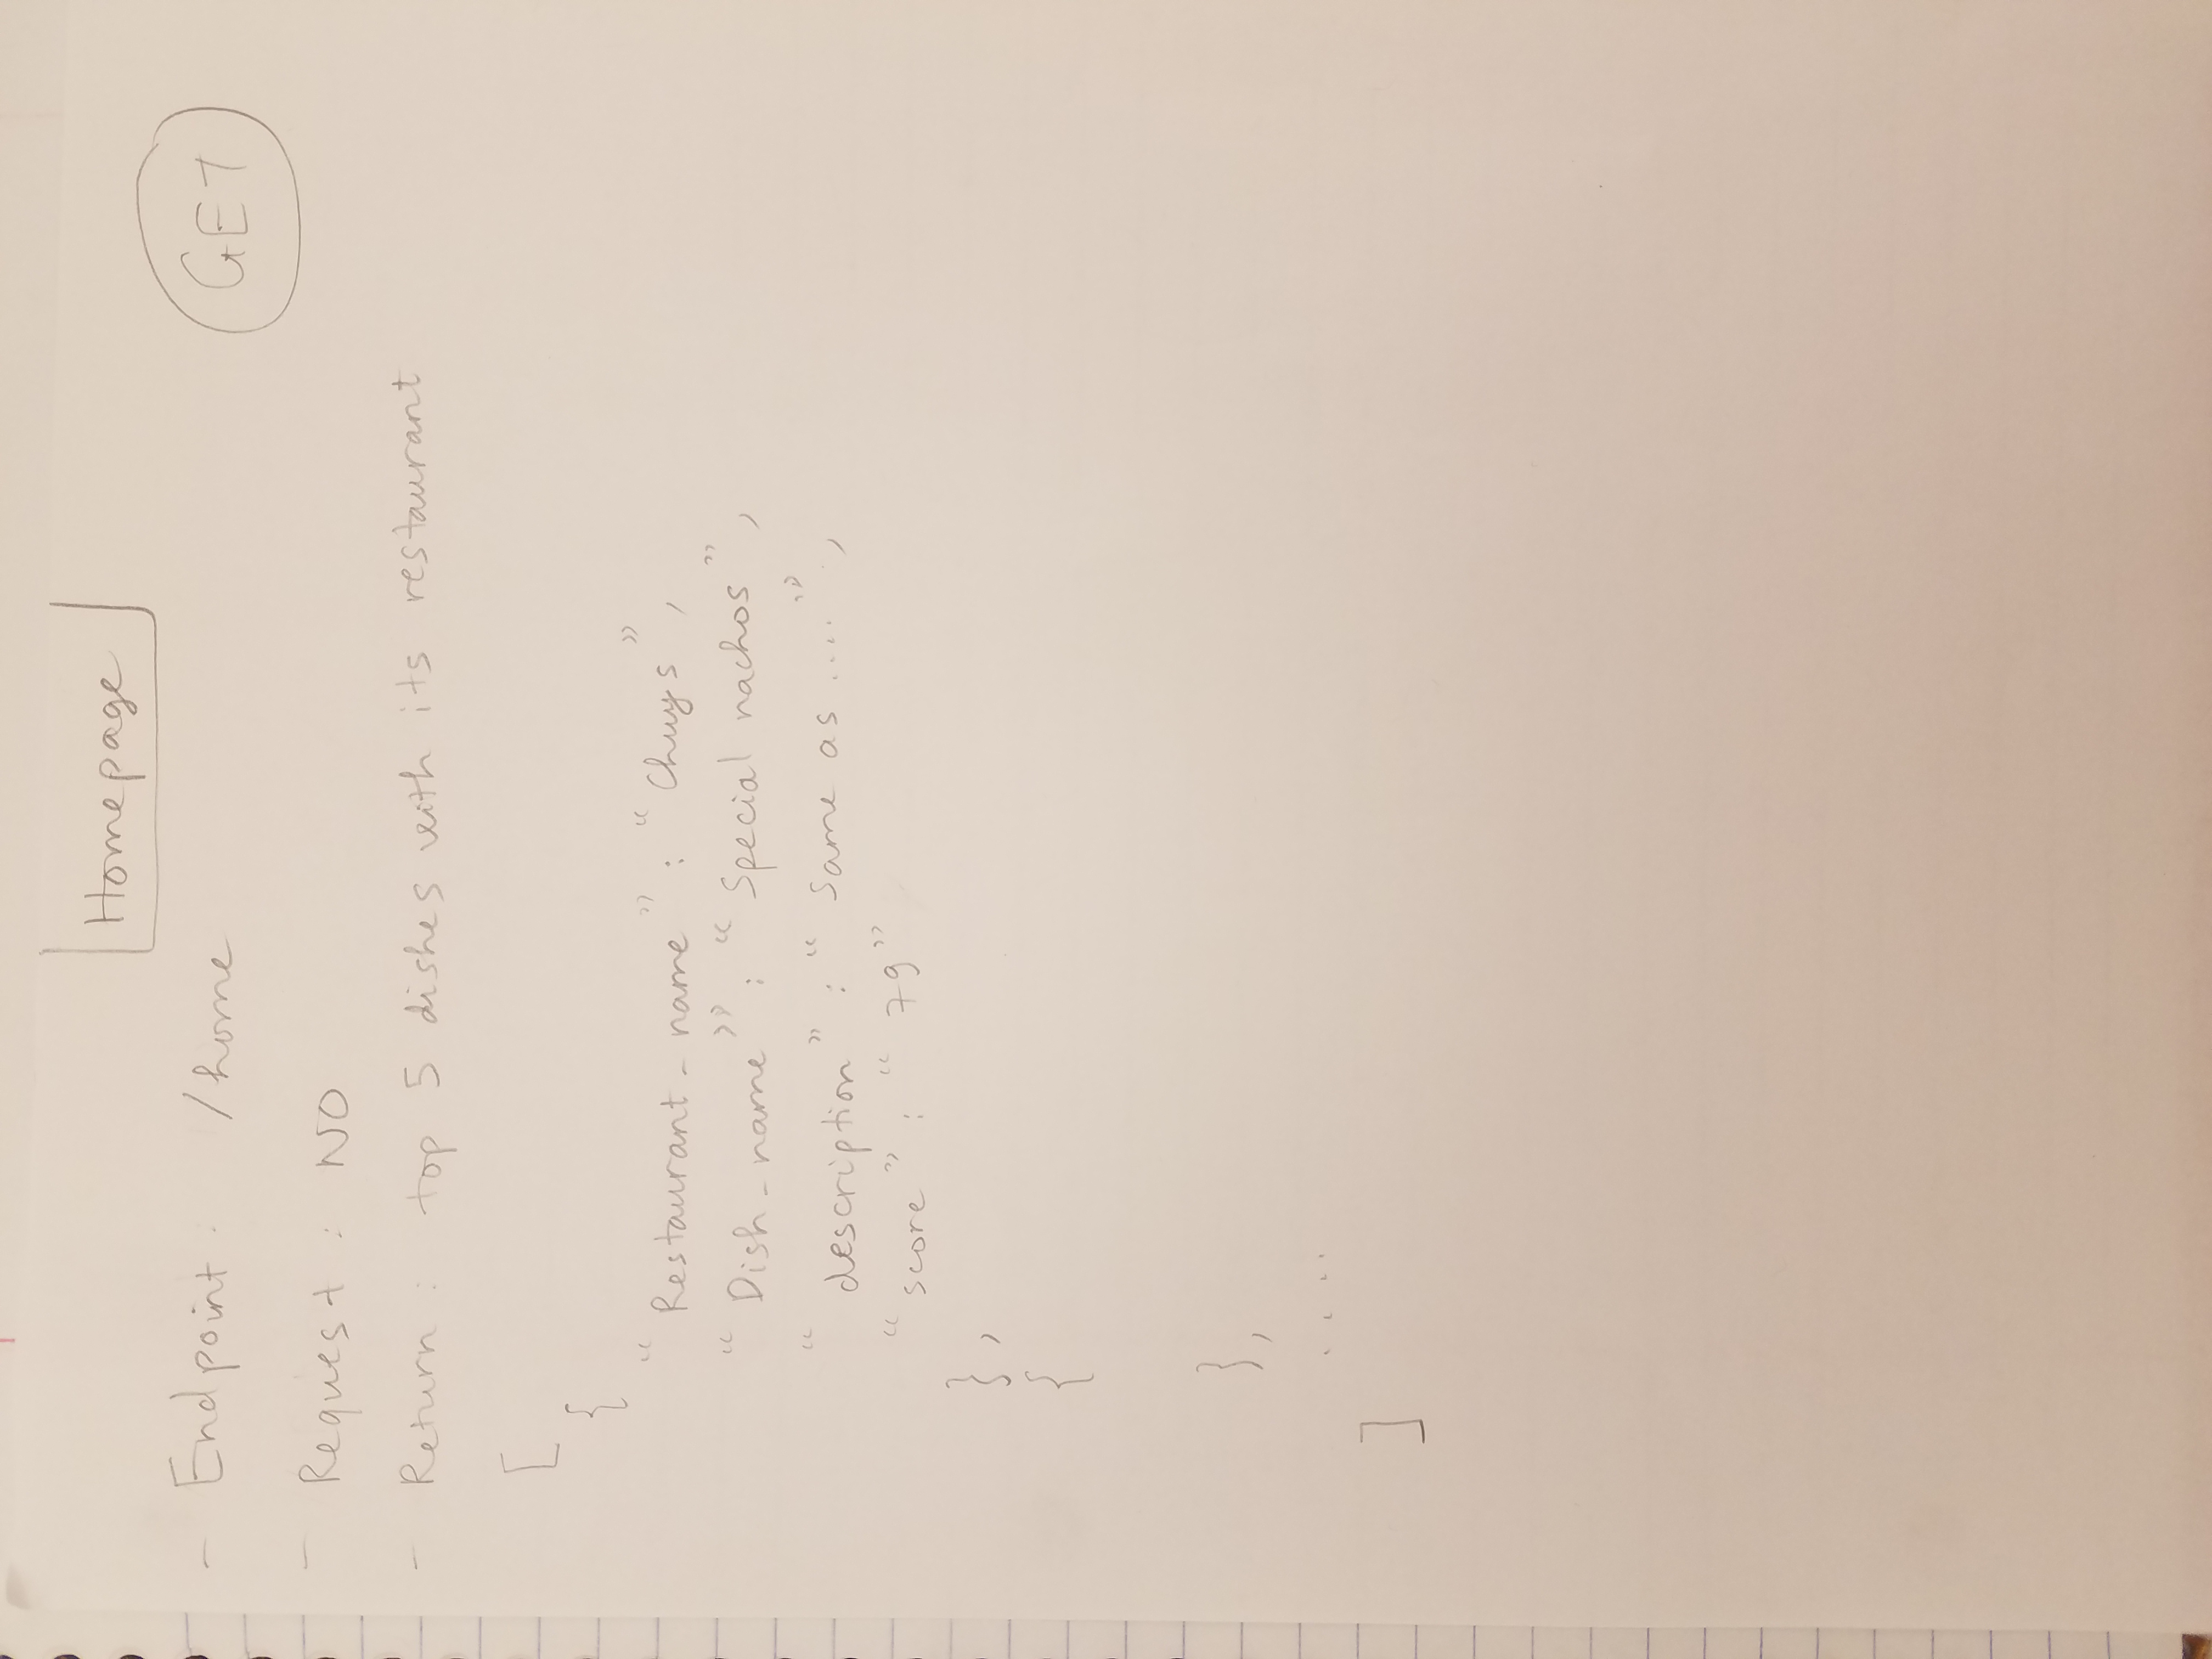 Homepage
- Endpoint : /home
GET
- Request : NO
- Return : top 5 dishes with its restaurant
[
{
"Restaurant-name" : "Chuys",
"Dish-name" : "Special nachos",
"description" : "same as ....",
"score" : "79"
},
{
},
....
]